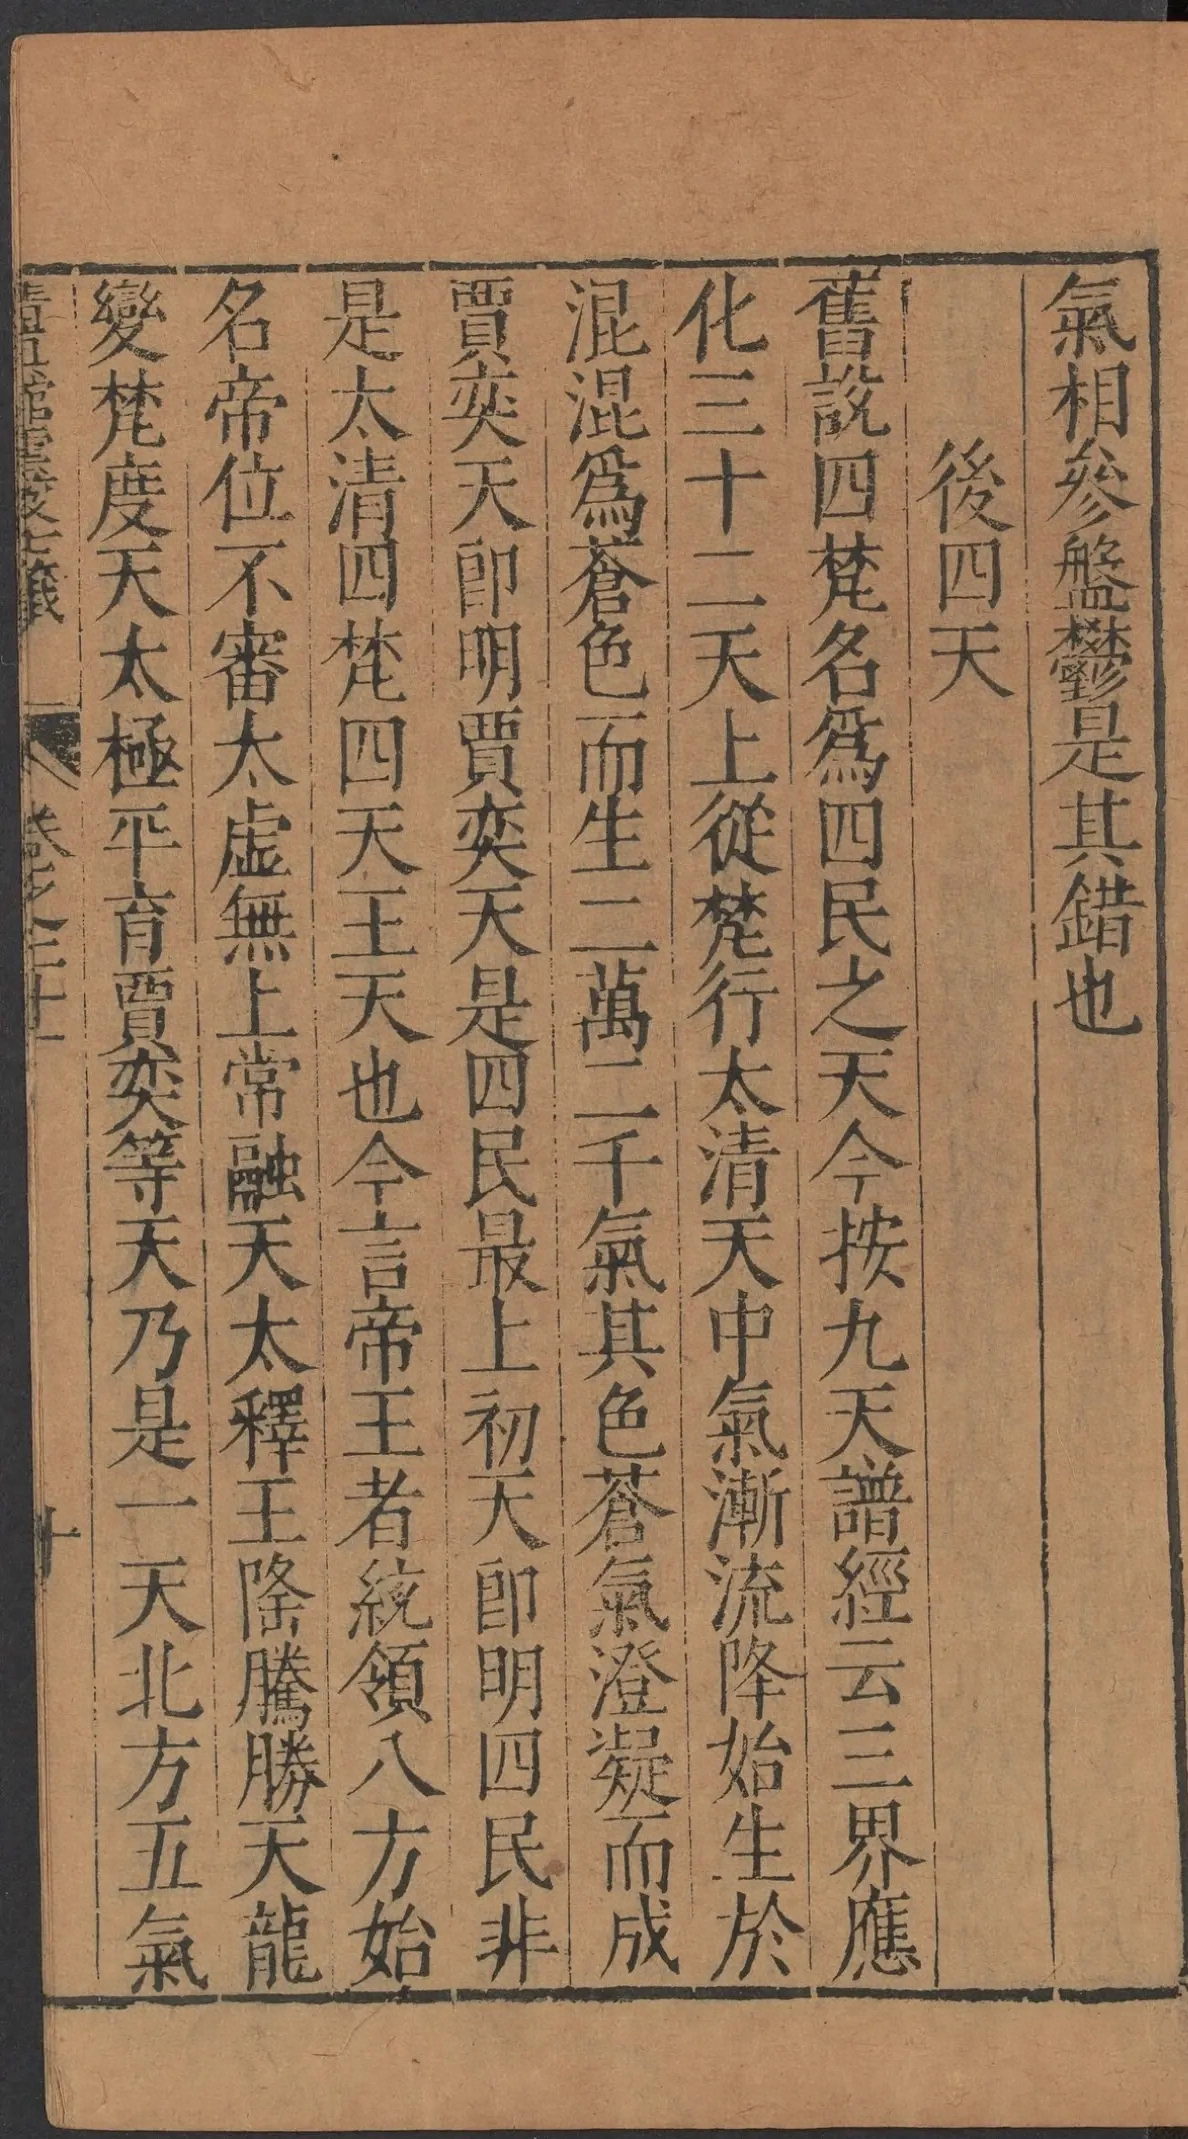 氣相參盤鬱是其錯也
後四天
舊說四梵名爲四民之天今按九天譜經云三界應
化三十二天上從梵行太清天中氣漸流降始生於
混混爲蒼色而生二萬二千氣其色蒼氣澄凝而成
賈奕天卽明賈奕天是四民最上初天卽明四民非
是太清四梵四天王天也今言帝王者統領八方始
名帝位不審太虛無上常融天太釋王隆騰勝天龍
變梵度天太極平育賈奕等天乃是一天北方五氣
卷之三十一 十